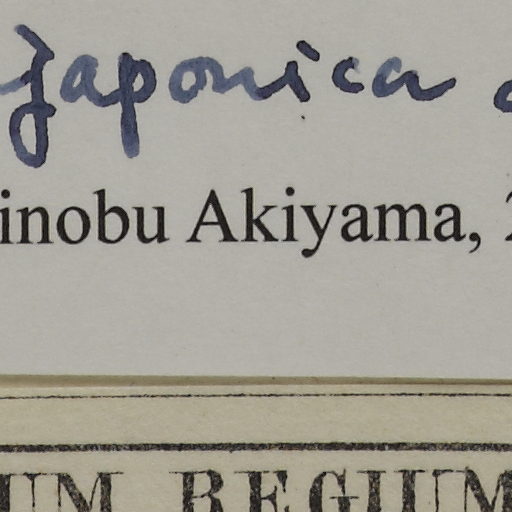 japonica
inobu Akiyama,
UM REGIUM